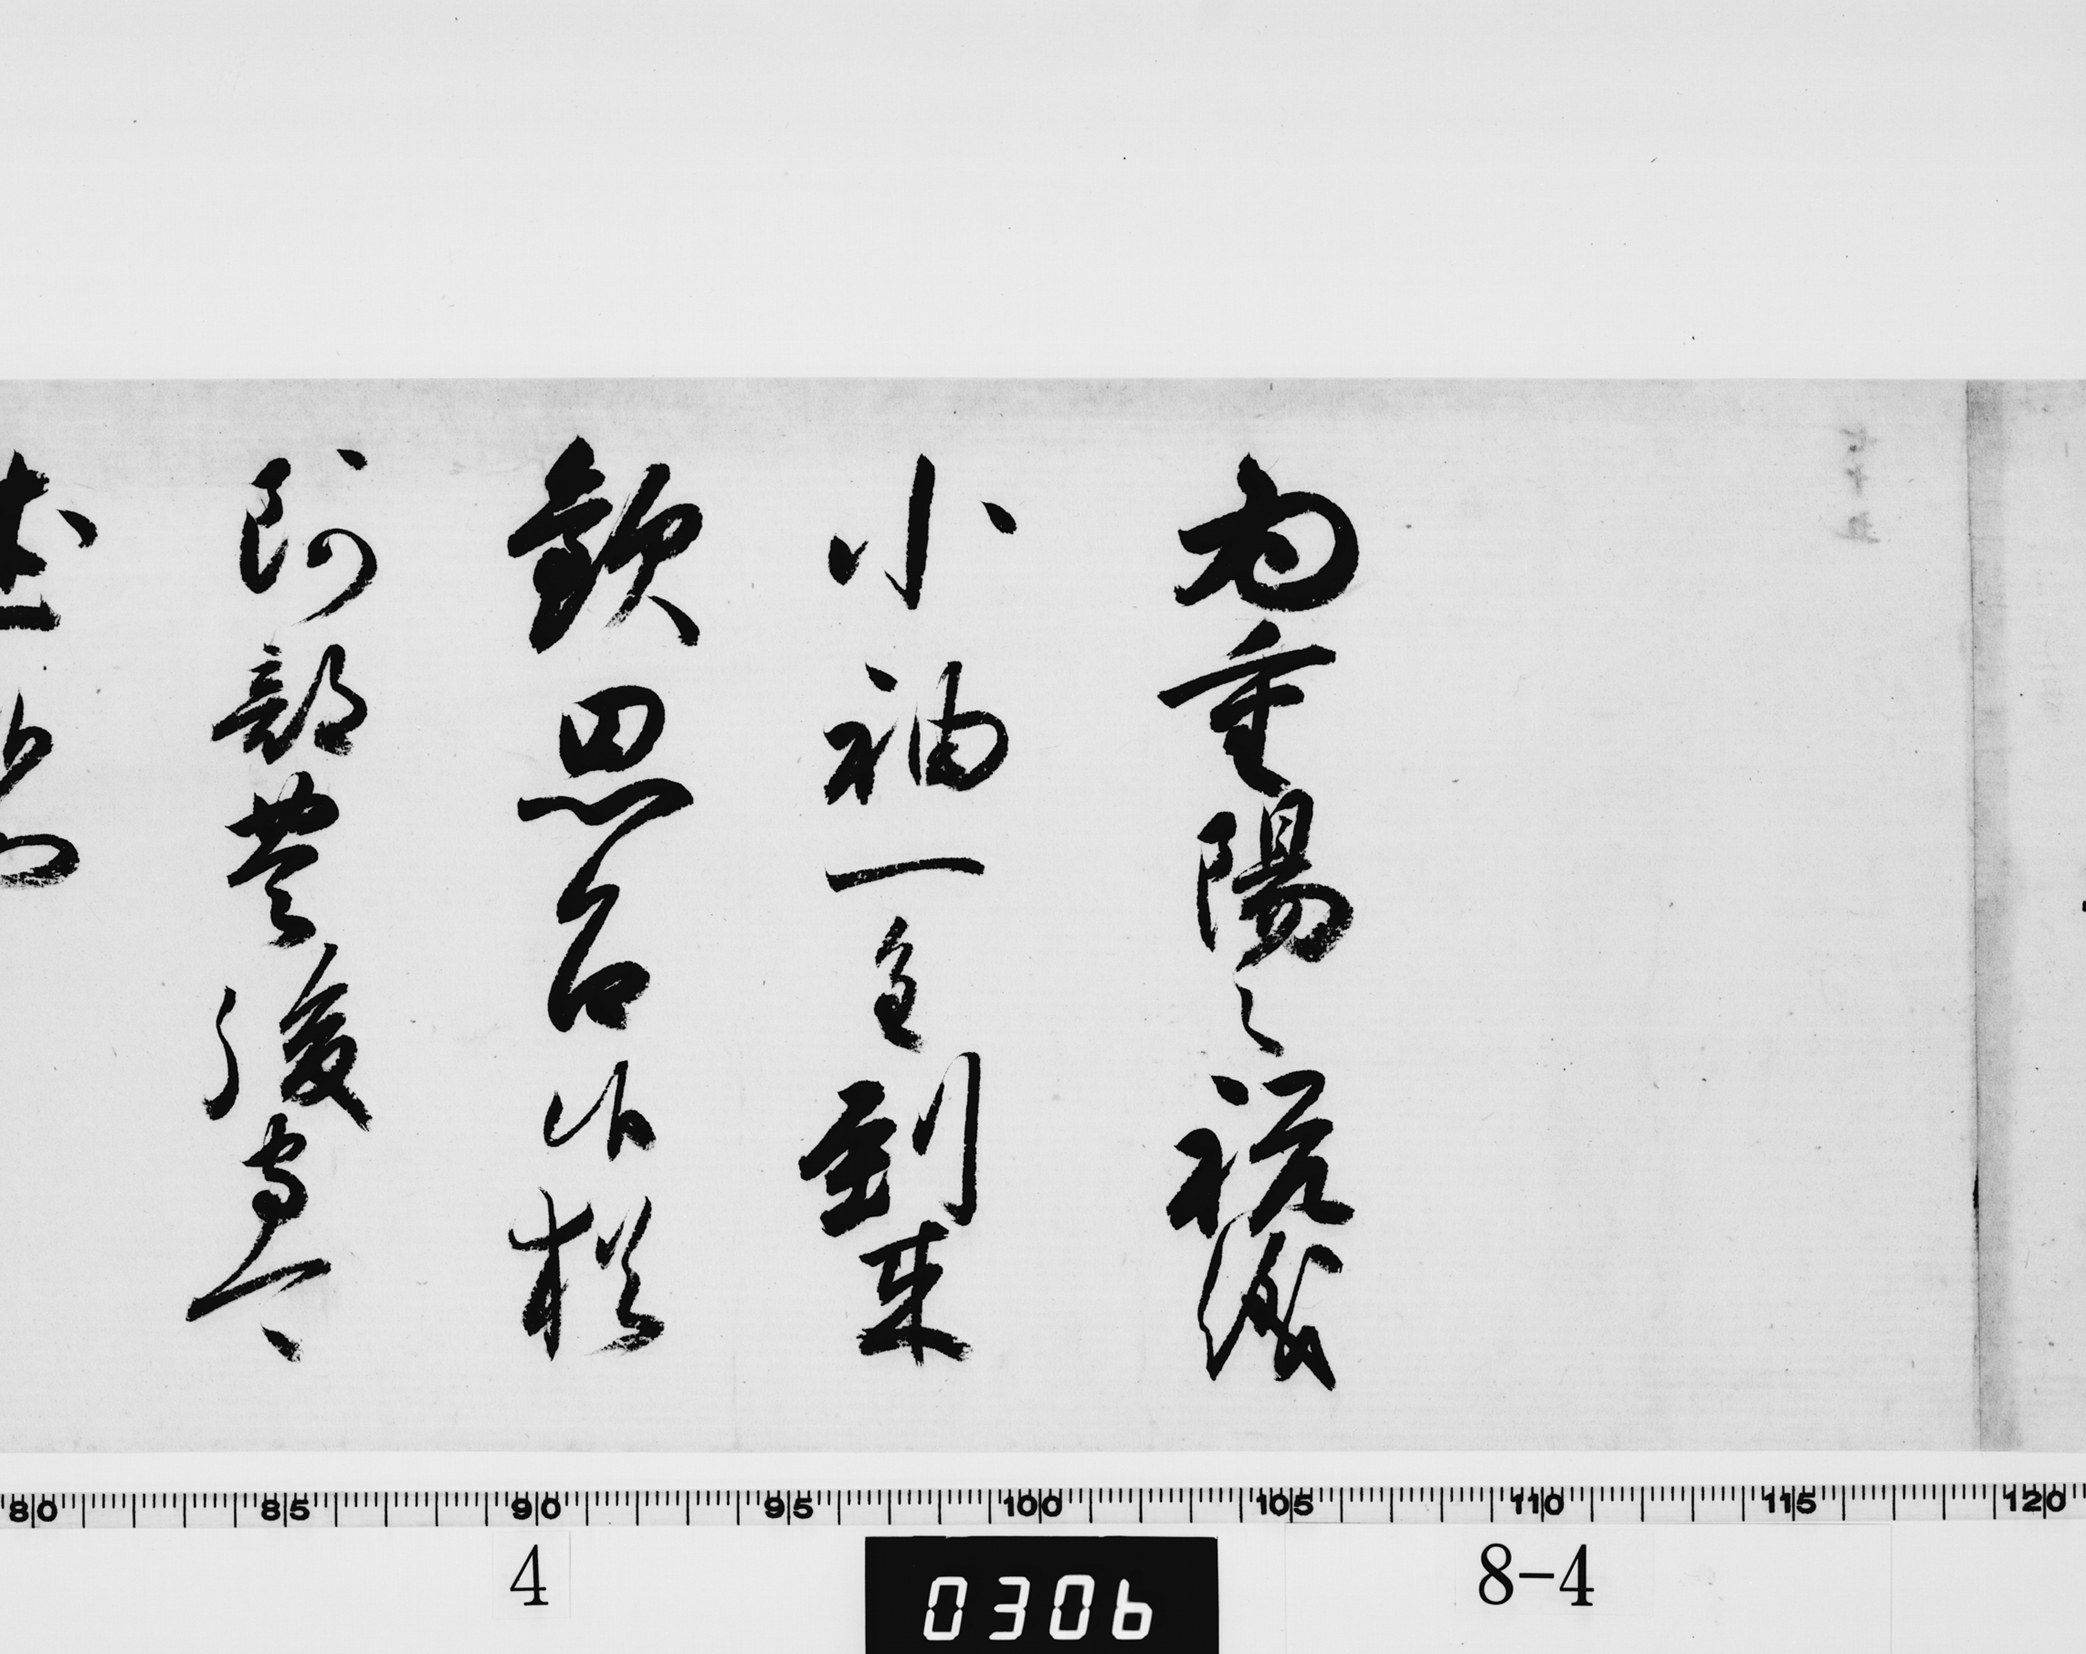 為重陽之祝儀
小袖一重到来
歓思召候猶
阿部豊後守可
述候也
80 85 90 95 100 105 110 115 120
4
0306
8-4